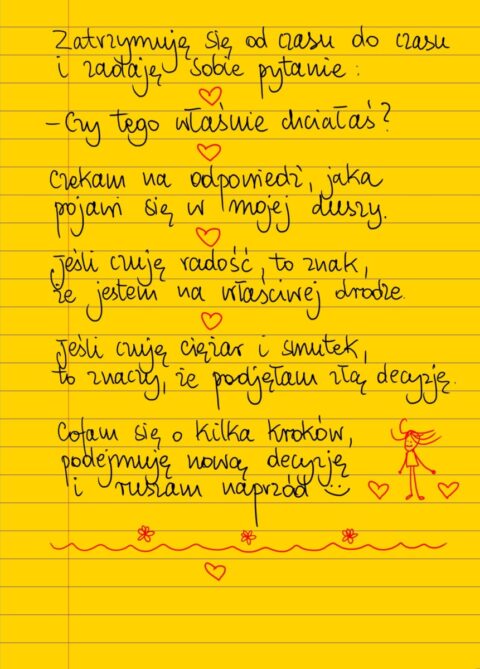 Zatrzymuję się od czasu do czasu
i zadaję sobie pytanie:
– Czy tego właśnie chciałaś?
Czekam na odpowiedź, jaka
pojawi się w mojej duszy.
Jeśli czuję radość, to znak,
że jestem na właściwej drodze.
Jeśli czuję ciężar i smutek,
to znaczy, że podjęłam złą decyzję.
Cofam się o kilka kroków,
podejmuję nową decyzję
i ruszam naprzód :)